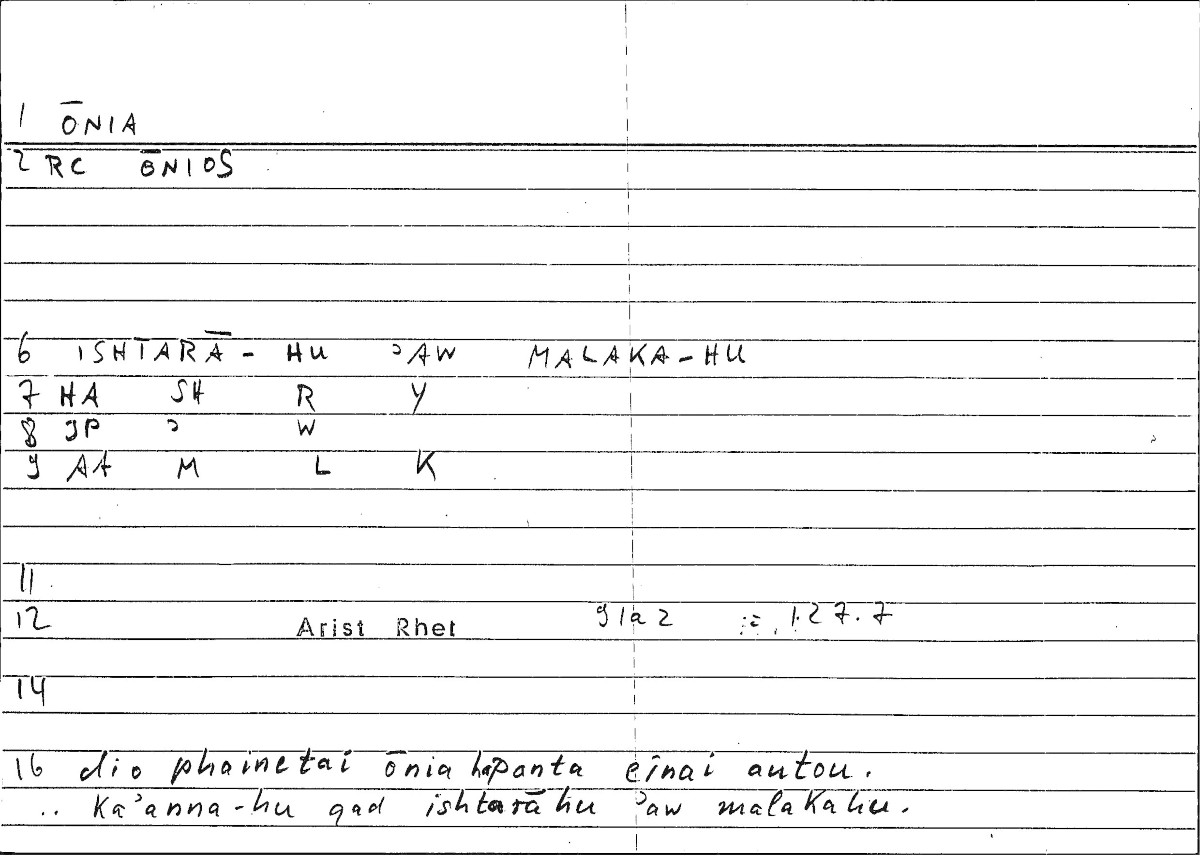 1 ŌNIA
2 RC ŌNIOS
6 ISHTARĀ- HU ʾAW MALAKA-HU
7 HA SH R Y
8 JP ʾ W
9 AA M L K
11
12 Arist Rhet 91a2 = 127.7
14
16 dio phainetai ōnia hapanta einai autou.
.. Kaʾanna-hu qad ishtarāhu ʾaw malakahu.